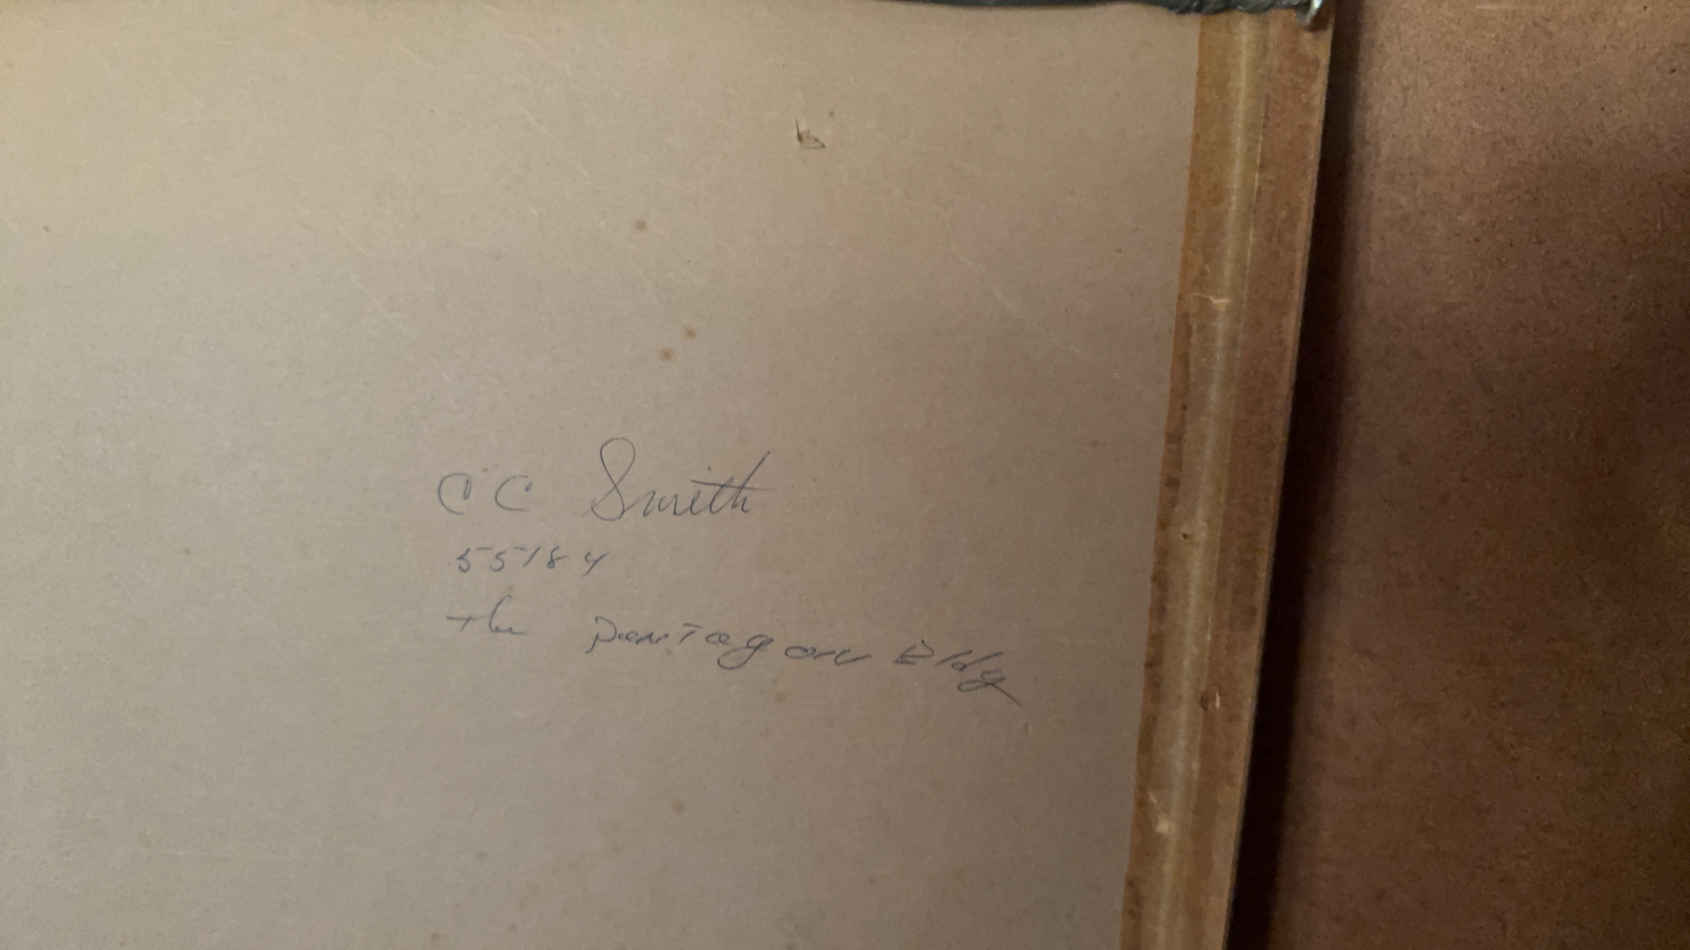 CC Smith
55184
The pentagon Bldg